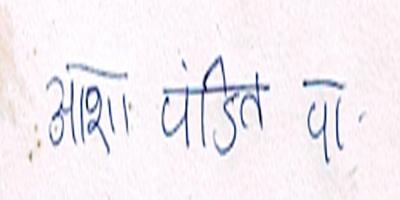 आशा पंडित पा.